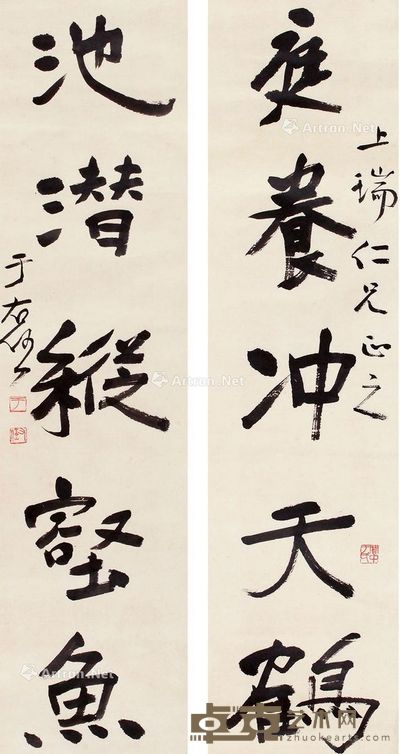 庭養冲天鶴
上瑞仁兄正之
池潜縱壑魚
于右任
Artron.Net
Artron.Net
Artron.Net
Artron.Net
Artron.Net
zhuokearts.com